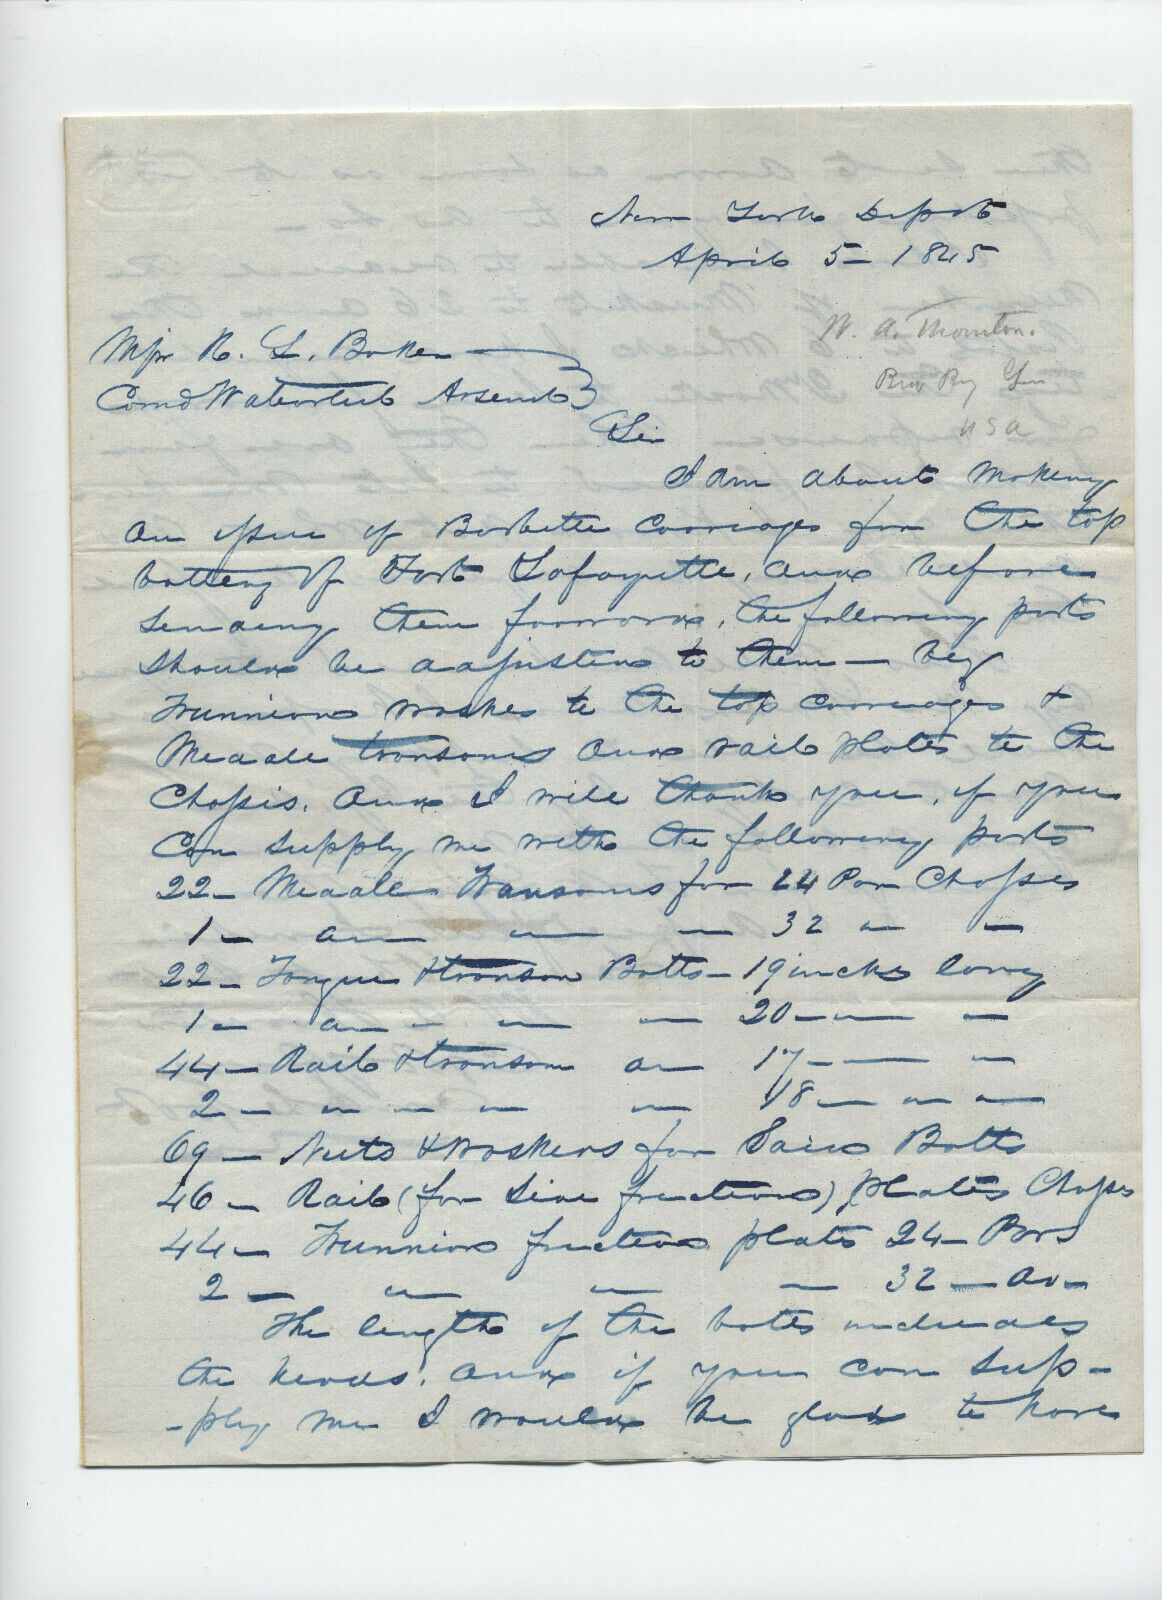 New York Depot
April 5 - 1845
W. A. Thornton.
Brev Brg Gen
USA
Mjr R. L. Baker
Comd Watervliet Arsenal
Sir
I am about making
an issue of Barbette carriages for the top
battery of Fort Lafayette, and before
sending them forward, the following parts
should be adjusted to them — viz
Trunnion washes to the top carriages &
Meadle transoms and rail plates to the
Chassis. And I will thank you, if you
can supply me with the following parts
22 - Meadle Transoms for 24 Pdr Chasses
1 - do — — 32 " —
22 - Tongue & transom Bolts - 19 inches long
1 - do - — — 20 — —
44 - Rail & transom do 17 — —
2 - " " " " 18 — " —
69 - Nuts & washers for Said Bolts
46 - Rail (for side frictions) plates Chasses
44 - Trunnion friction plates 24 - Prs
2 — " " — 32 — do -
The length of the bolts includes
the heads. And if you can sup-
-ply me I would be glad to have